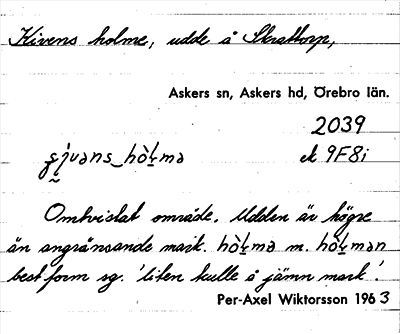 Kivens holme, udde å Skrattorp,
Askers sn, Askers hd, Örebro län.
2039
ek 9F8i
Omtvistat område. Udden är högre
än angränsande mark. hò̀ḻmə m. hò̀ḻmən
best form sg. 'liten kulle å jämn mark'.
Per-Axel Wiktorsson 1963